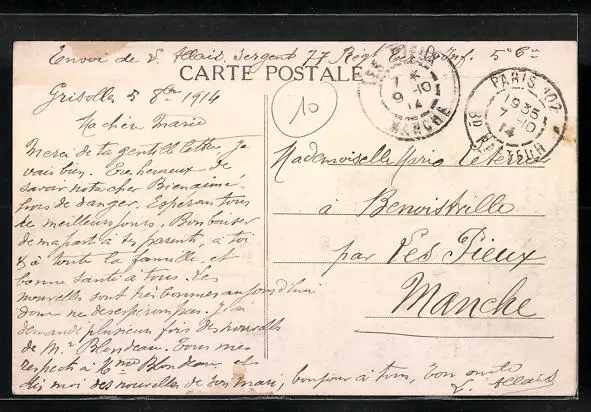 Envoi de L. Allais, Sergent 77 Régt Ter. Inf. 5e Cie
CARTE POSTALE
Grisolles 5 8bre 1914
Ma chère Marie
Merci de ta gentille lettre, je
vais bien. Très heureux de
savoir notre cher Bienaimé
hors de danger. Espérons tous
de meilleurs jours. Bon baiser
de ma part à tes parents, à toi
& à toute la famille et
bonne santé à tous. Les
nouvelles sont très bonnes aujourd'hui
donc ne désespérons pas. J'ai
demandé plusieurs fois des nouvelles
de Mr Blondeau. Tous mes
respects à Mme Blondeau et
dis moi des nouvelles de son mari, bonjour à tous, ton
L. Allais
10
LES PIEUX
7 *
9 -10
14
MANCHE
PARIS 107
1935
7 -10
14
Mademoiselle Marie
à Benoistville
par Les Pieux
Manche